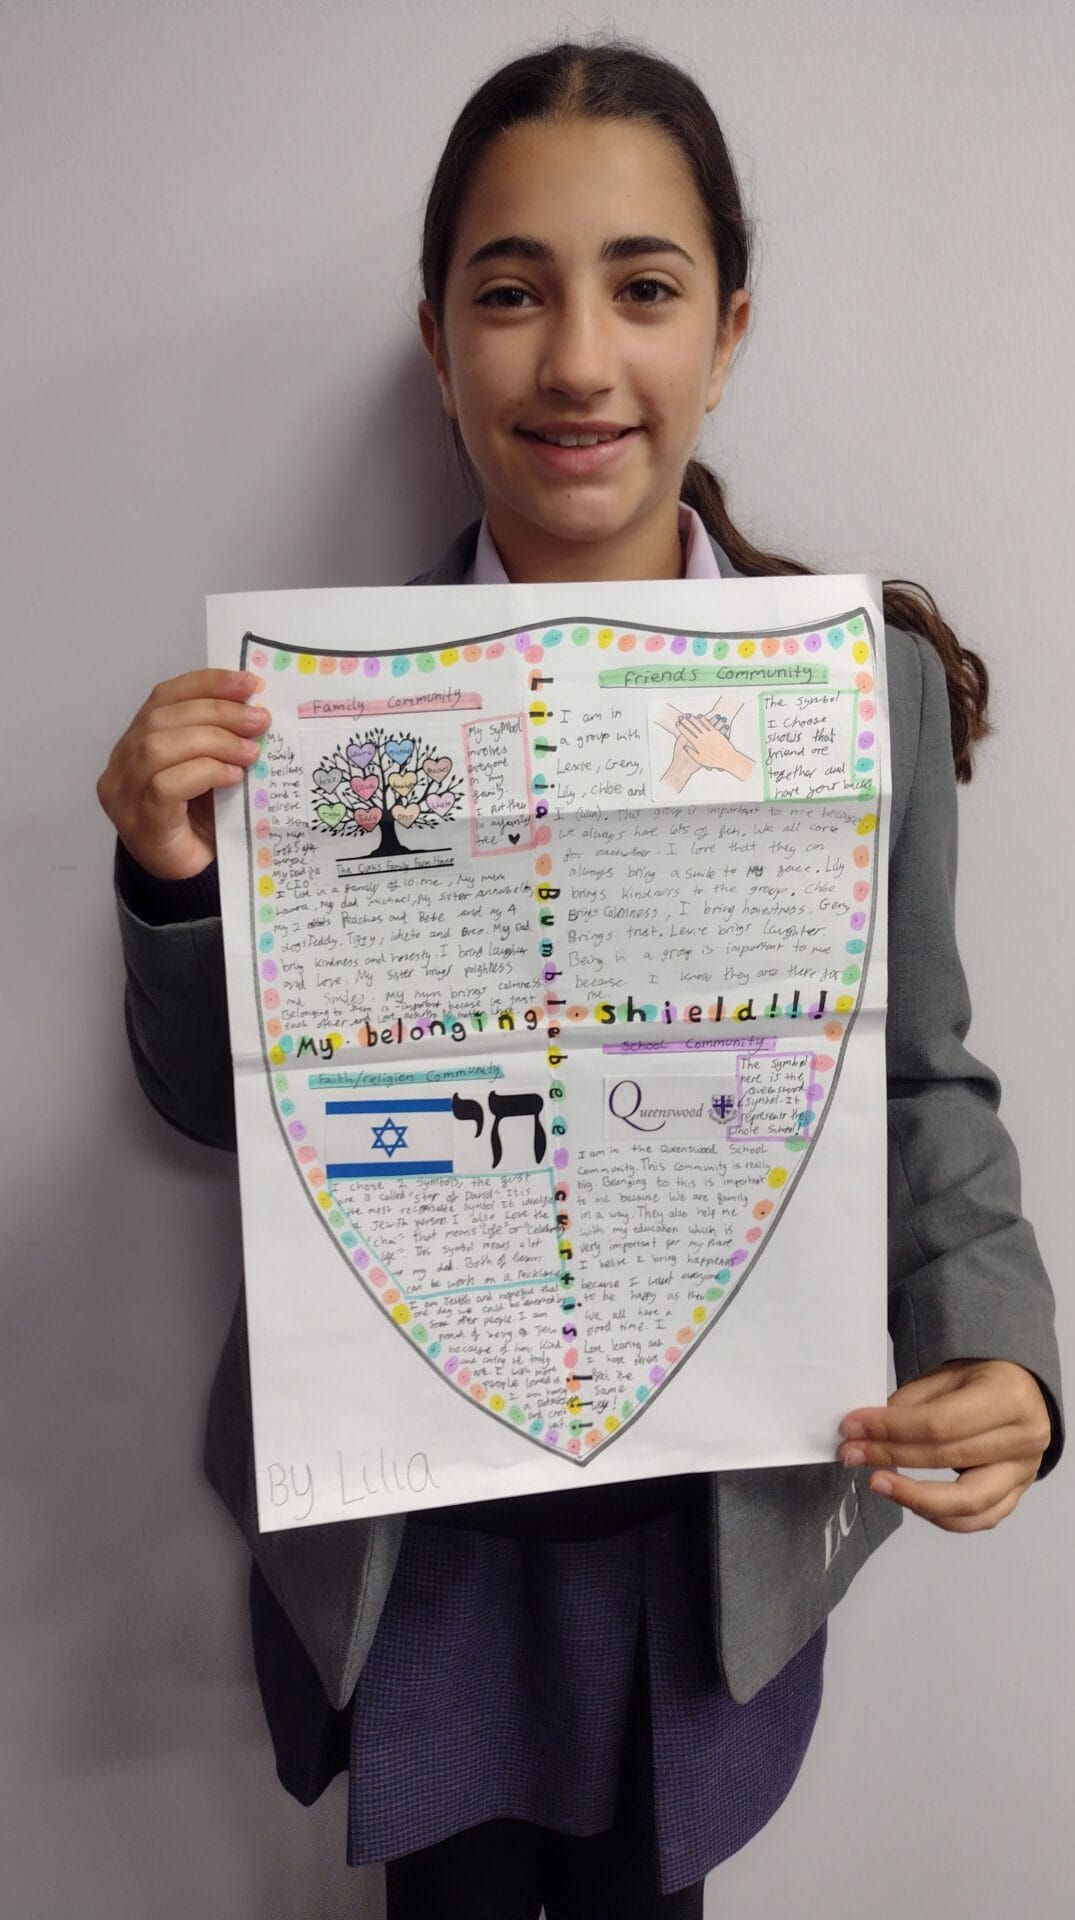 Family Community
My
family
believes
in me
and I
believe
in them
My mum
looks
everyone.
My Dad is a
CIO.
Laura
Michael
Bebe
Lilia
Annabelle
Peaches
Tiggy
Teddy
Oreo
The Curtis Family Farm House
My symbol
involves
everyone
in my
family.
I put them
in a family
tree. ♥
I live in a family of 10. me, My mum
Laura, my dad michael, My sister Annabelle,
My 2 Peaches and Bebe and my 4
dogs Teddy, Tiggy, and Oreo. My Dad
bring kindness and honesty. I bring laughter
and Love. My sister brings
and Smiles. My mum brings calmness.
Belonging to them is important because we trust
each other and Love
Friends Community
I am in
a group with
Lexie, Geny,
Lily, Chloe and
The symbol
I choose
shows that
friend are
together and
have your back!
I (Lilia). This group is important to me because
we always have lots of fun. We all care
for eachother. I love that they can
always bring a smile to my face. Lily
brings Kindness to the group. Chloe
Brings Calmness, I bring honeitness. Geny
Brings trust. Lexie brings laughter.
Being in a group is important to me
because I know they are there for
me.
Lilia Bumblebee Curtis!!!
My belonging shield!!!
Faith/religion Community
חי
I chose 2 symbols, the first
one is called "Star of David" It is
the most recognisable symbol. It
a Jewish person. I also Love the
"chai" that means "life" or
life" This symbol means a lot
to my dad. Both of them
can be worn on a necklace
I am Jewish and hopeful that
one day we could be
other people. I am
proud of being a Jew
because of how kind
and caring we truly
are. I wish more
people loved us.
I am having
a
and can't
wait.
School Community
Queenswood
The symbol
here is the
Queenswood
symbol. It
represents the
whole school!
I am in the Queenswood School
Community. This community is really
big. Belonging to this is important
to me because We are family
in a way. They also help me
with my education which is
very important for my future
I belive I bring happieness
because I want everyone
to be happy as then
we all have a
good time. I
Love learing and
I hope others
feel the
same
way!
By Lilia
LC